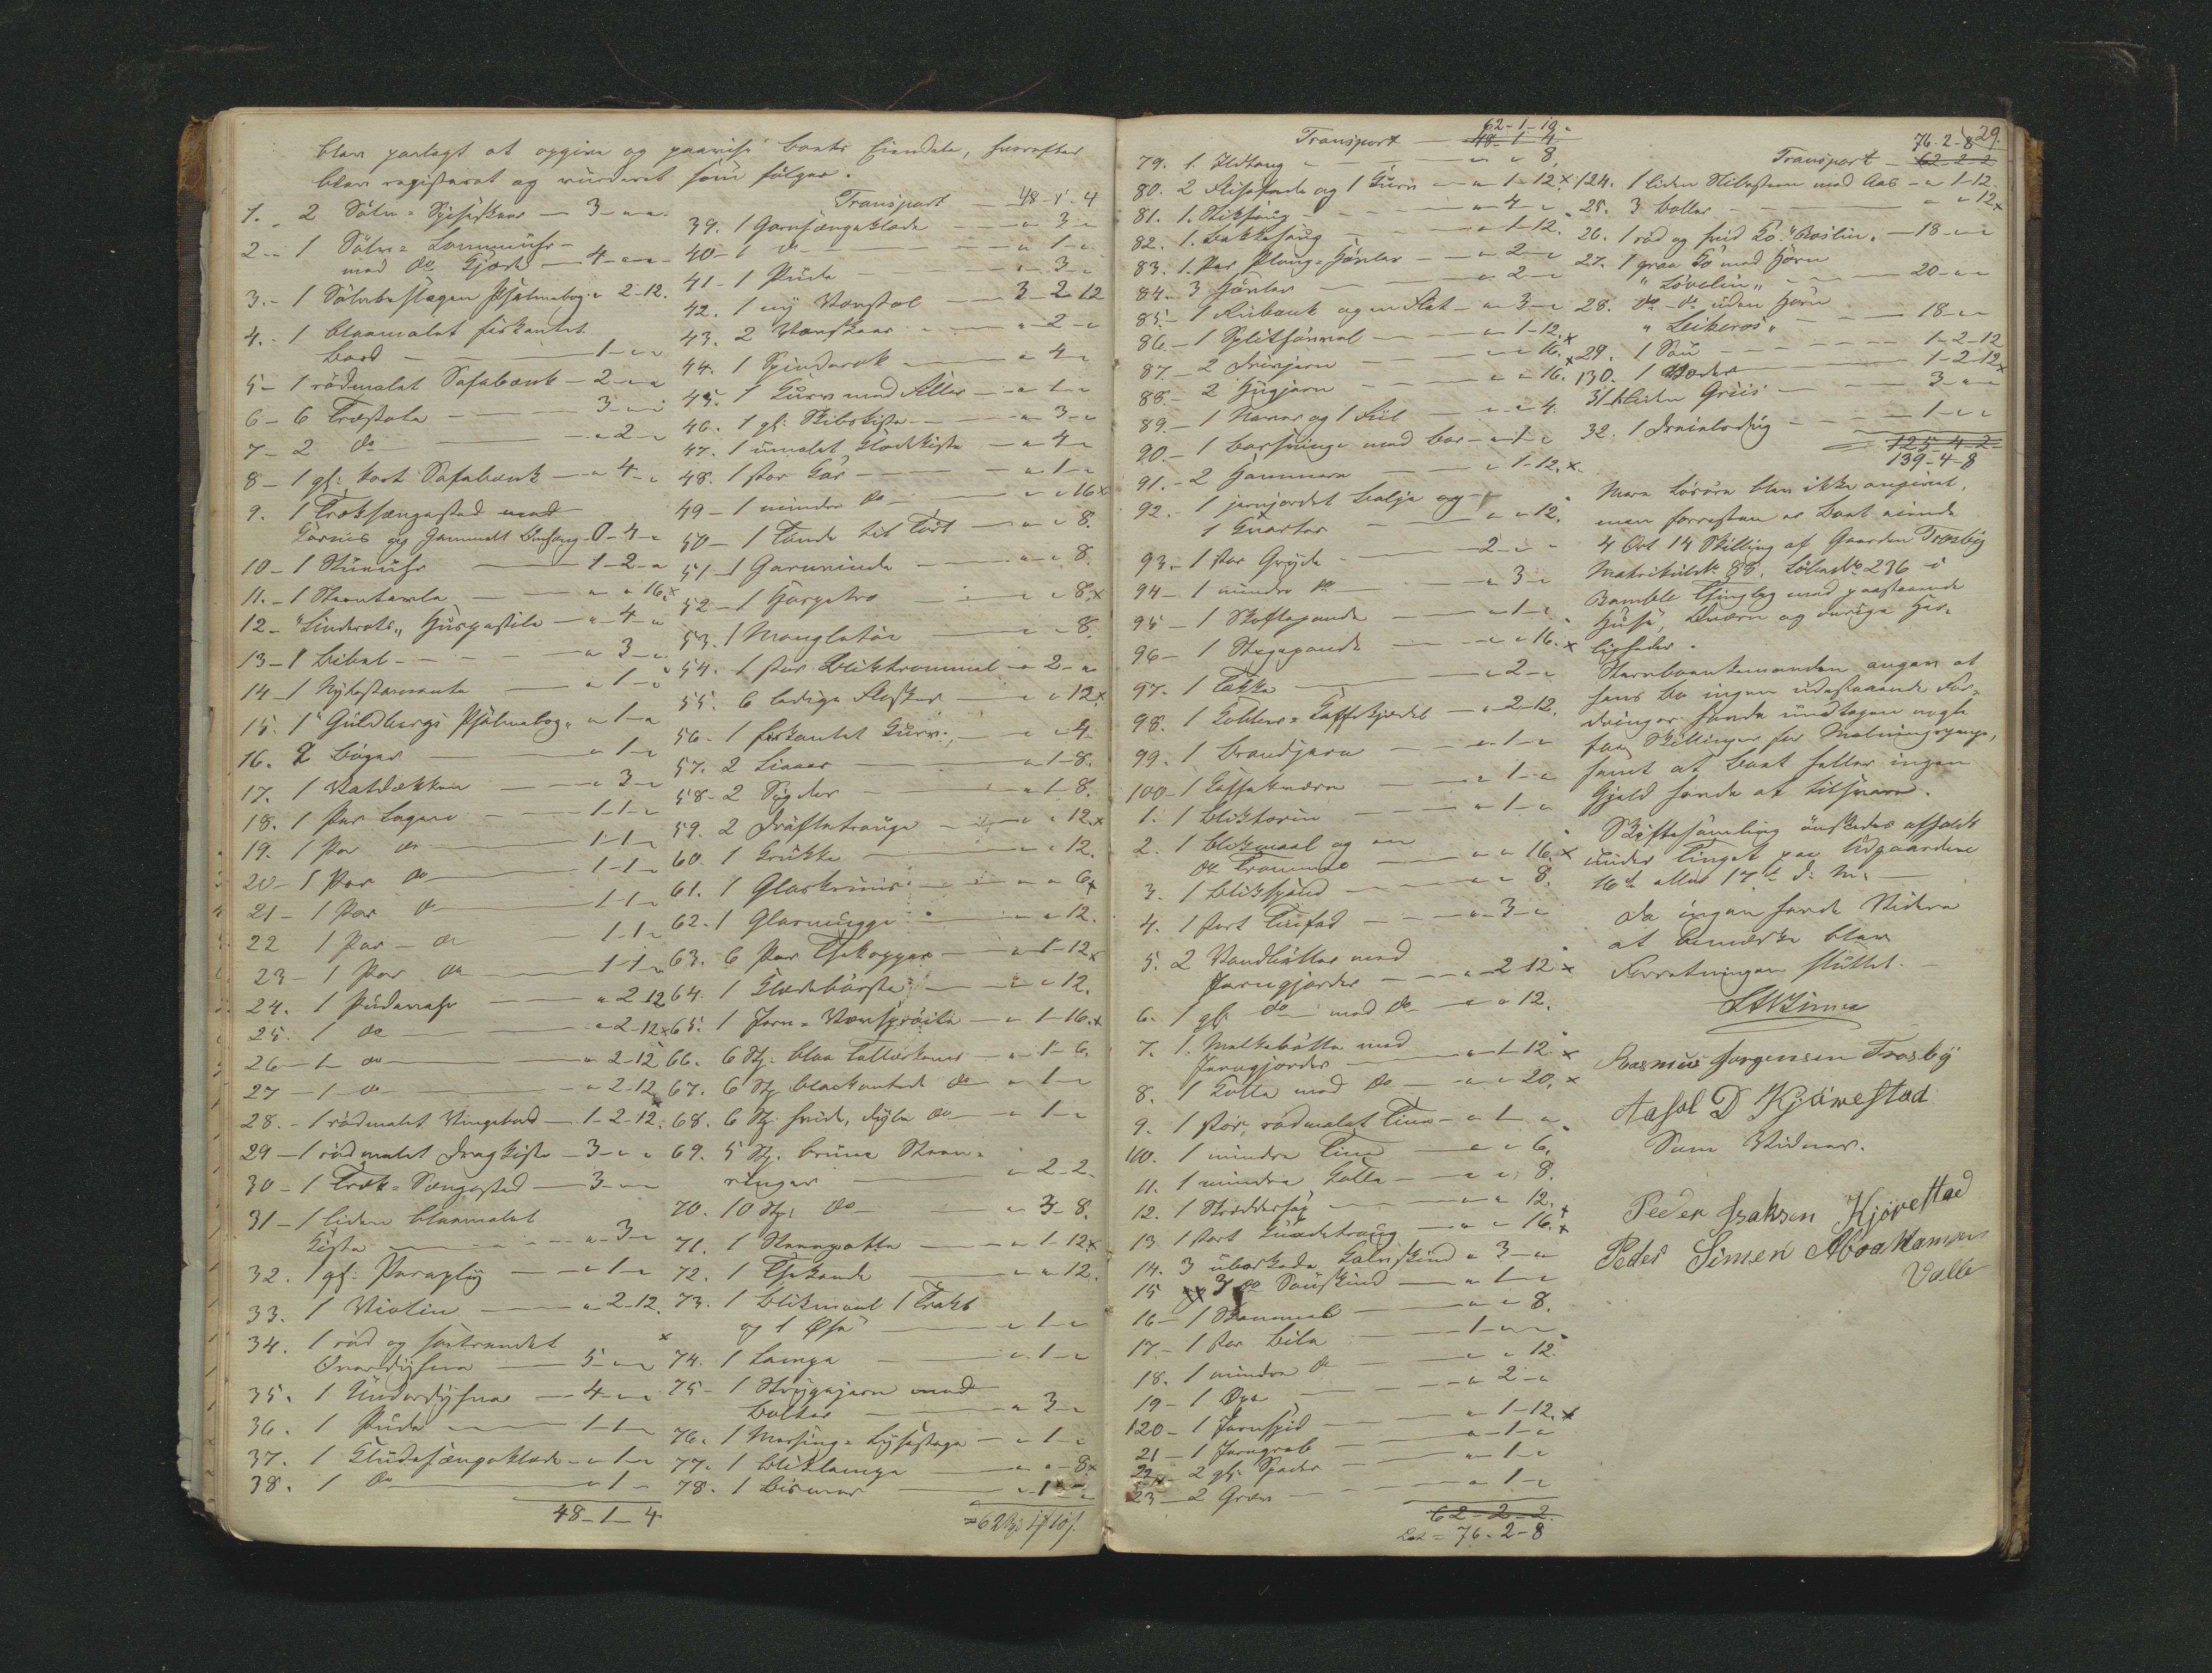 blev paalagt at opgive og paavise boets Eiendele, hvorefter
blev registeret og vurderet som følger.
1. 2 Sølv-Spiseskeer — 3 - " - "
2 - 1 Sølv-Lommeuhr
med do Kjæde — 4 - " - "
3. - 1 Sølvbeslagen Psalmebog " 2-12.
4. - 1 blaamalet firkantet
Bord — 1 - " - "
5 - 1 rödmalet Sofabænk — 2 - " - "
6 - 6 Træstole — 3 - " - "
7 - 2 do — " - 2 - "
8 - 1 gl: kort Sofabænk — " 4 - "
9. 1 Træksængested med
og gammelt Omhæng 0 - 4 - "
10 - 1 Stueuhr — 1 - 2 - "
11. - 1 Steentavle — " " 16 x
12 - "Linderots" Huuspostille — " 4 - "
13 - 1 Bibel — " 3 - "
14 - 1 Nytestamente — " 1 - "
15. 1 "Guldbergs Psalmebog" " 1 - "
16. 2 Bøger — " 1 - "
17. 1 — " 3 - "
18. 1 Par Lagen — 1 - 1 - "
19. 1 Par do — 1 - 1 - "
20 - 1 Par do — 1 - 1 - "
21 - 1 Par do — 1 - 1 - "
22 1 Par do — 1 - 1 - "
23 - 1 Par do — 1 - 1 - "
24. 1 Pudevahr — " 2-12
25. 1 do — " 2-12 x
26 - 1 do — " 2-12
27 - 1 do — " 2-12
28. - 1 rödmalet — 1-2-12
29 - 1 rödmalet Dragkiste — 3 - " - "
30 - 1 Træk-Sængested — 3 - " - "
31 - 1 liden blaamalet
Kiste — " 3 - "
32. 1 gl: Paraply — " 1 - "
33. 1 Violin — " 2-12.
34. 1 röd og sortrandet
Overdyhne — 5 - " - "
35. 1 Underdyhne — 4 - " - "
36. 1 Pude — 1 - 1 - "
37. 1 Kludesængeklæde — " 1 - "
38. 1 do — " 1 - "
48-1-4
Transport — 48-1-4
39. 1 Garnsængeklæde — " 3 - "
40 - 1 do — " 1 - "
41 - 1 Pude — " 3 - "
42. 1 ny Vævstol — 3-2-12
43. 2 Vævskeer — " 2 - "
44. 1 Spinderok — " 4 - "
45. 1 Kurv med — " 1 - "
46. 1 gl: Skibskiste — " 3 - "
47. 1 umalet Klædekiste — " 4 - "
48. 1 stor Kar — " 1 - "
49 - 1 mindre do — " " 16 x
50 - 1 Tønde til — " " 8.
51 - 1 Garnvinde — " " 8.
52 - 1 — " " 8. x
53. 1 — " " 8.
54. 1 stor Bliktrommel — " 2 - "
55. 6 ledige Flasker — " " 12 x
56. 1 firkantet Kurv. — " " 4.
57. 2 Liaaer — " 1-8.
58 - 2 Sigder — " 1-8.
59. 2 Dröftetrouge — " " 12 x
60. 1 Krukke — " " 12.
61. 1 — " " 6 x
62. 1 — " " 12.
63. 6 Par Thekopper — " 1-12 x
64. 1 Klædebörste — " " 12.
65. 1 Jern- — " 1-16. x
66. 6 Stk: blaa Tallerkener — " 1-6.
67. 6 Stk blaakantede do — " 1 - "
68. 6 Stk: hvide, dybe do — " 1 - "
69. 5 Stk. brune Steen-
— " 2-2.
70. 10 Stk: do — " 3-8.
71. 1 Steenpotte — " 1-12 x
72. 1 Thekande — " " 12.
73. 1 Blikmaal 1 Trakt
og 1 Øse — " 1 - "
74. 1 Lampe — " 1 - "
75 - 1 Strygejern med
Bolter — " 3 - "
76. 1 Messing-Lysestage — " 1 - "
77. 1 Bliklampe — " " 8 x
78. 1 Bismer — " 1 - "
= 62
Transport — 62-1-10. 48-1-4
79. 1. Ildtang — " " 8.
80. 2 og 1 Kurv — " 1-12 x
81. 1. Stiksaug — " 4 - "
82. 1. Bakkesaug — " 1-12.
83. 1. Par Ploug-Høvler — " 2 - "
84. 3 Høvler — " 2 - "
85. - 1 — " 3 - "
86. - 1 — " 1-12. x
87. - 2 — " " 16. x
88. - 2 Hugjern — " " 16.
89. - 1 Naver og 1 Fiil — " " 4.
90. - 1 med Bor — " 1 - "
91. - 2 Hammere — " 1-12. x
92. - 1 jerngjordet Balje og
1 Kvarter — " " 12.
93. - 1 stor Gryde — 2 - " - "
94 - 1 mindre do — " 3 - "
95 - 1 Skaftepande — " 1 - "
96 - 1 Stegepande — " " 16. x
97. 1 Takke — " 2 - "
98. 1 Kobber-Kaffekjedel — " 2-12.
99. 1 Brandjern — " 1 - "
100 - 1 Kaffekværn — " 1 - "
1. 1 — " 1 - "
2. 1 Blikmaal og en
do — " " 16. x
3. 1 Blikspand — " " 8.
4. 1 stort Tinfad — " 3 - "
5. 2 Vandbøtter med
Jerngjorder — " 2-12 x
6. 1 gl: do med do — " " 12.
7. 1. Melkebøtte med
Jerngjorder — " 1-12 x
8. 1 Kolle med do — " " 20. x
9. 1 stor, rødmalet Tine — " 1 - "
110. 1 mindre Tine — " " 6.
11. 1 mindre Kolle — " " 8.
12. 1 — " " 12. x
13. 1 stort — " " 16. x
14. 3 Kalveskind " 3 - "
15 3 do Saueskind — " 1 - "
16 - 1 — " " 8.
17. - 1 stor Bile — 1 - " - "
18. 1 mindre do — " " 12
19 - 1 Øxe — " 2 - "
120 - 1 Jernspid — " 1-12. x
21 - 1 Jerngreb — " 1 - "
22 - 2 gl: Spader — " 1 - "
23 - 2 — " 1 - "
62-2-2.
= 76-2-8
29.
Transport — 76-2-8 62-2-2
124. 1 liden Slibesteen med Aas — " 1-12.
25. 3 Baller — " " 12 x
26. 1 röd og hvid Ko "Roslin" — 18 - " - "
27. 1 graa Ko med Horn
"Løvelin" — 20 - " - "
28. do do uden Horn
"Leikeros" — 18 - " - "
29. 1 Sau — 1-2-12
130. 1 Væder — 1-2-12 x
31 1 liden Griis — 3 - " - "
32. 1 — 1 - " - "
125-4-2
139-4-8
Mere Løsøre blev ikke angivet,
men forresten er Boet eiende
4 Ort 14 Skilling af Gaarden Trosby
Matrikuls No 88, Løbe No 236 i
Bamble Thinglag med paastaaende
Huse, Kværn og øvrige Her-
ligheder.
Stervboenkemanden angav at
hans Bo ingen udestaaende For-
dringer havde undtagen nogle
faa Skillinger for Malningspenge,
samt at Boet heller ingen
Gjeld havde at tilsvare.
Skiftesamling ønskedes afholdt
under Tinget paa Vidgaardene
16de eller 17de d: M. —
Da ingen havde Videre
at bemærke blev
Forretningen sluttet.
Rasmus Jørgensen Trosby
Aasol D Kjörrestad
Som Vidner.
Peder Isaksen Kjørrestad
Peder Simen Abrahamsen
Valle